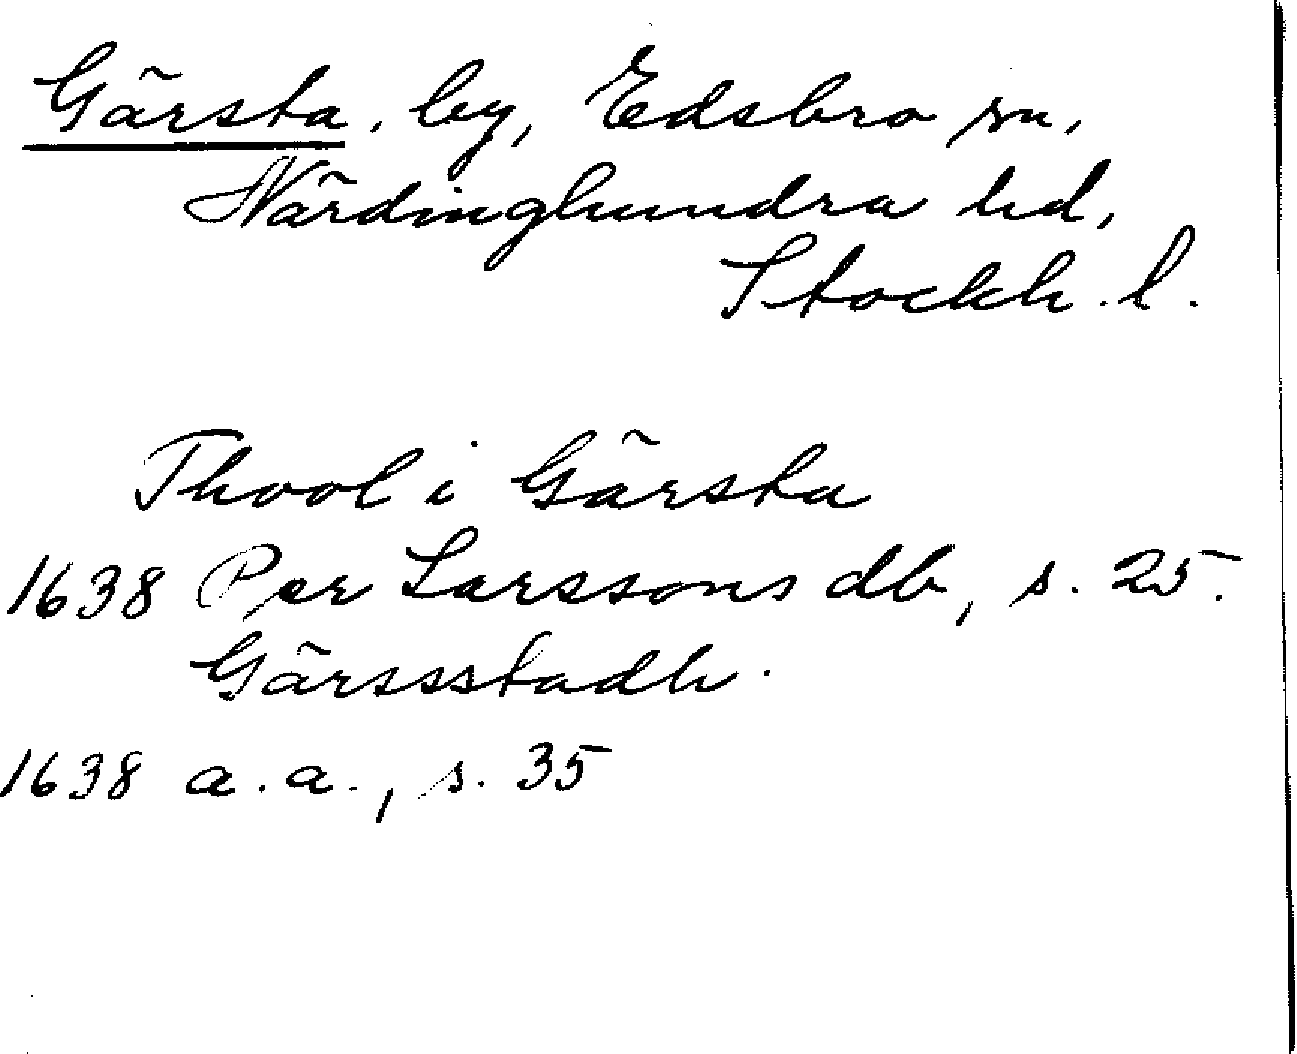 Gärsta, by, Edsbro sn,
Närdinghundra hd,
Stockh. l.
Thool i Gärsta
1638 Per Larssons db, s. 25.
Gärssstadh.
1638 a.a., s. 35